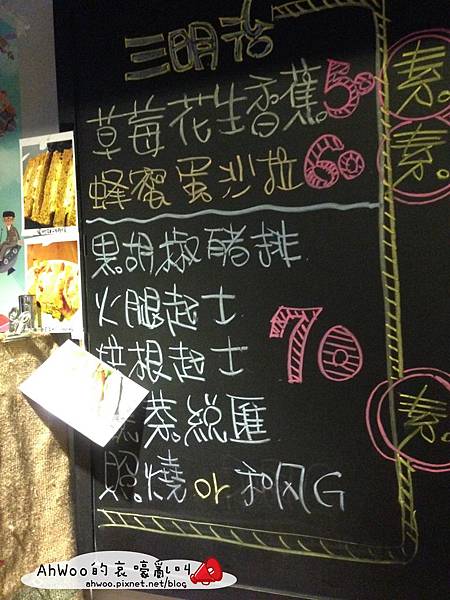 三明治
草莓花生香蕉 50 素。
蜂蜜蛋沙拉 60 素。
黑胡椒豬排
火腿起士
培根起士 70
蔬菜總匯 素。
照燒 or 和風G
AhWoo的哀嚎亂叫
ahwoo.pixnet.net/blog